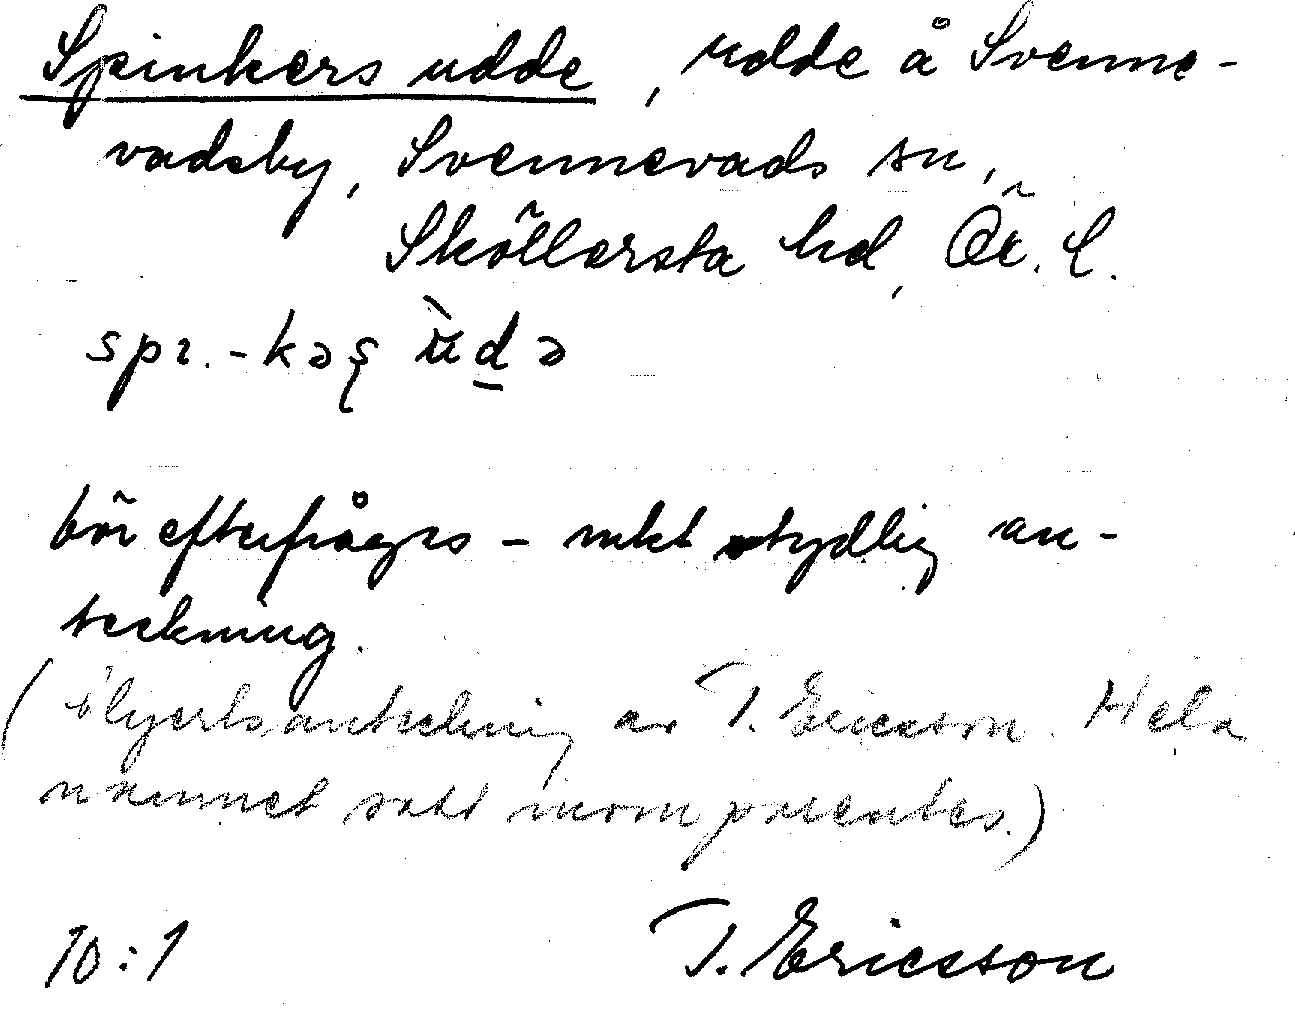 Spinkers udde, udde å Svenne-
vadsby, Svennevads sn,
Sköllersta hd, Ör. l.
spr. -kəş ùdə
bör efterfrågas - mkt otydlig an-
teckning.
(Blyertsanteckning av T. Ericsson. Hela
namnet satt inom parentes.)
10:1 T. Ericsson